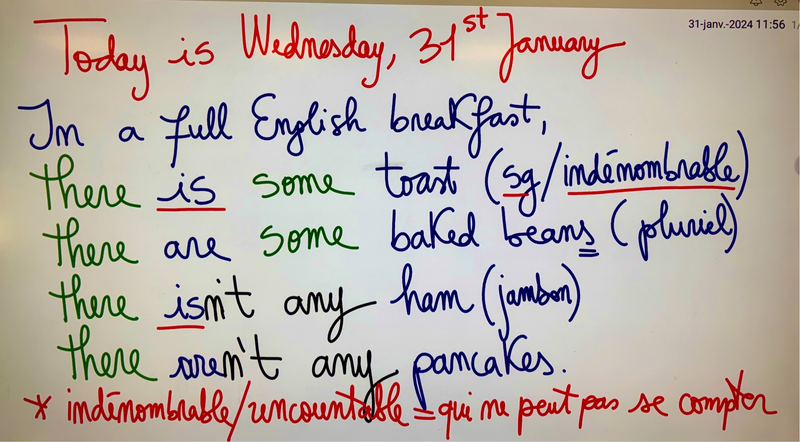 31-janv.-2024 11:56 1/
Today is Wednesday, 31st January
In a full English breakfast,
there is some toast (sg/indénombrable)
there are some baked beans (pluriel)
there isn't any ham (jambon)
there aren't any pancakes.
* indénombrable/uncountable = qui ne peut pas se compter